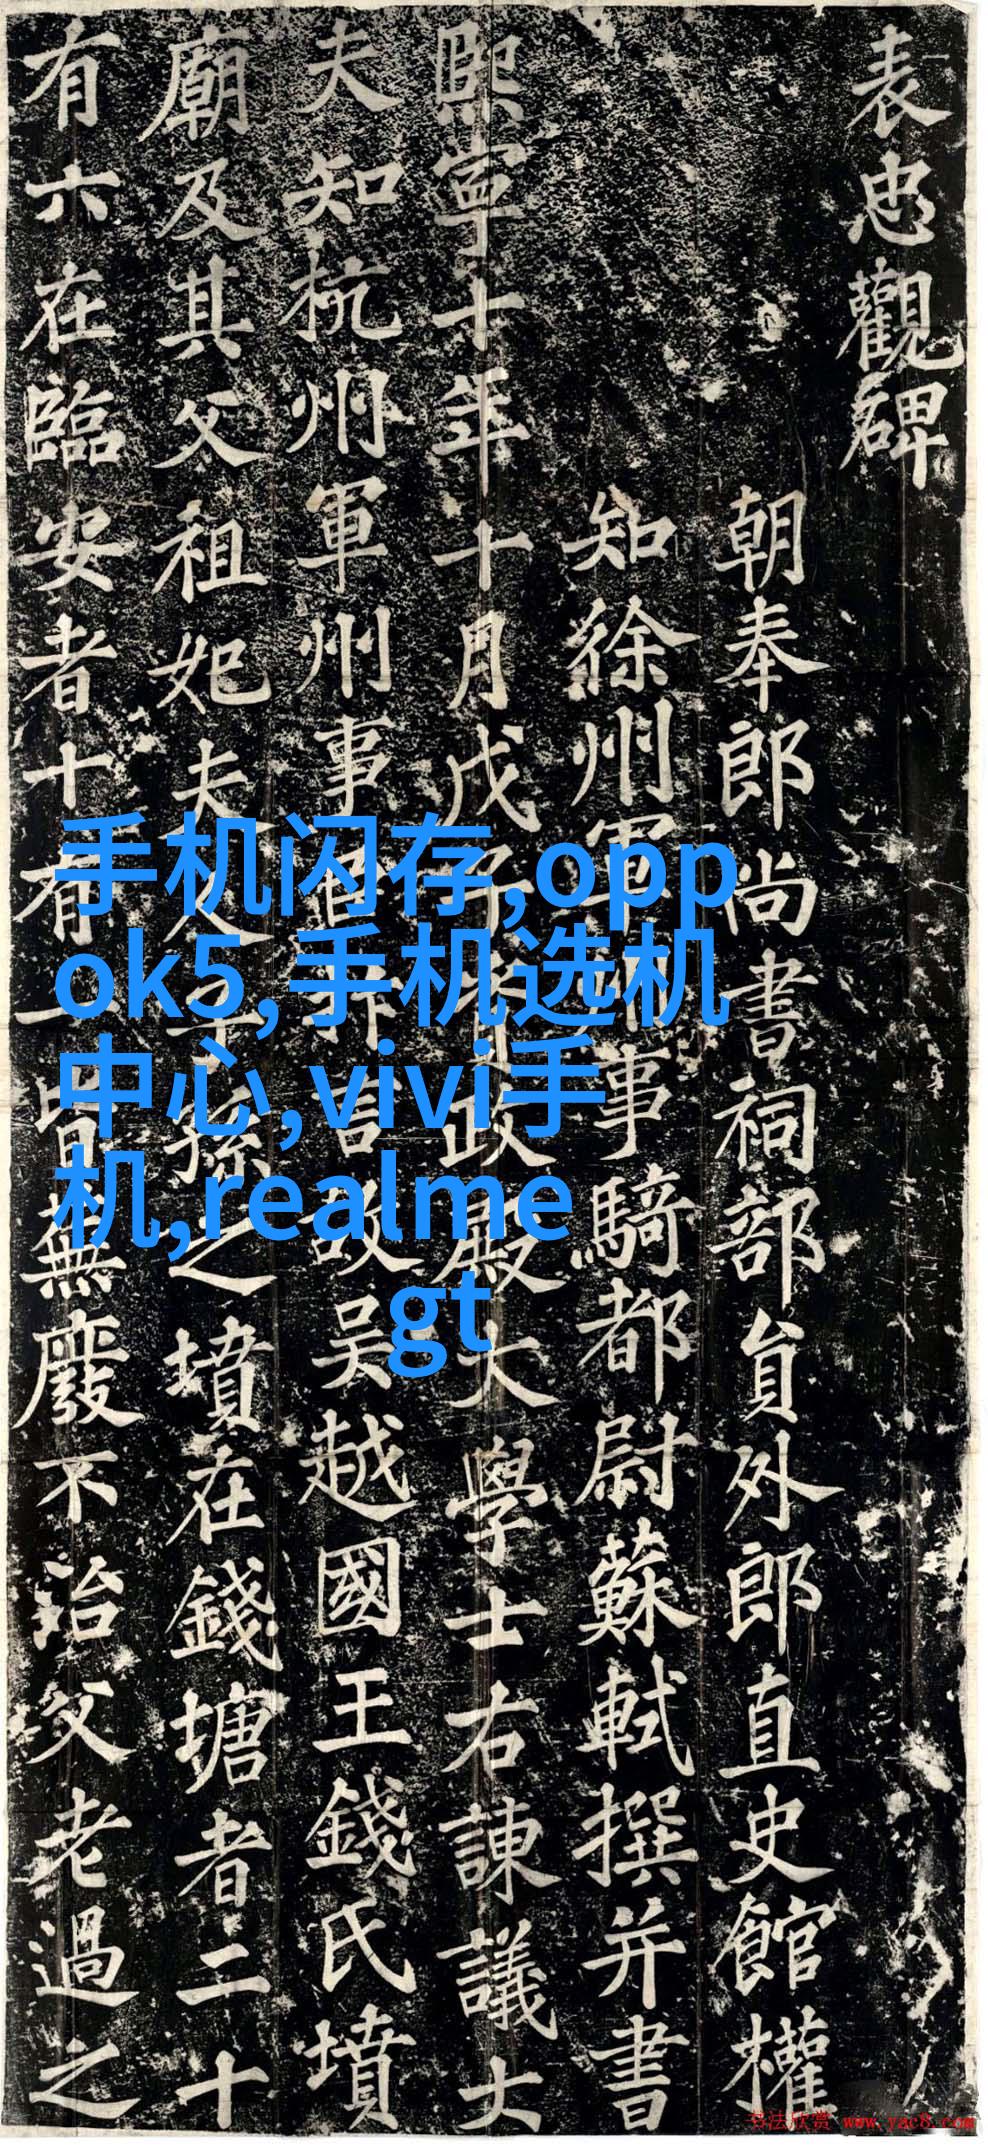 表忠觀碑
朝奉郎尚書祠部員外郎直史館權
知徐州軍州事騎都尉蘇軾撰并書
熙寧十年十月戊子資政殿大學士右諫議大
夫知杭州軍州事臣抃言故吳越國王錢氏墳
廟及其父祖妃夫人子孫之墳在錢塘者二十
有六在臨安者十有一皆蕪廢不治父老過之
手机闪存,opp
ok5,手机选机
中心,vivi手
机,realme
gt
书法欣赏 www.yac8.com